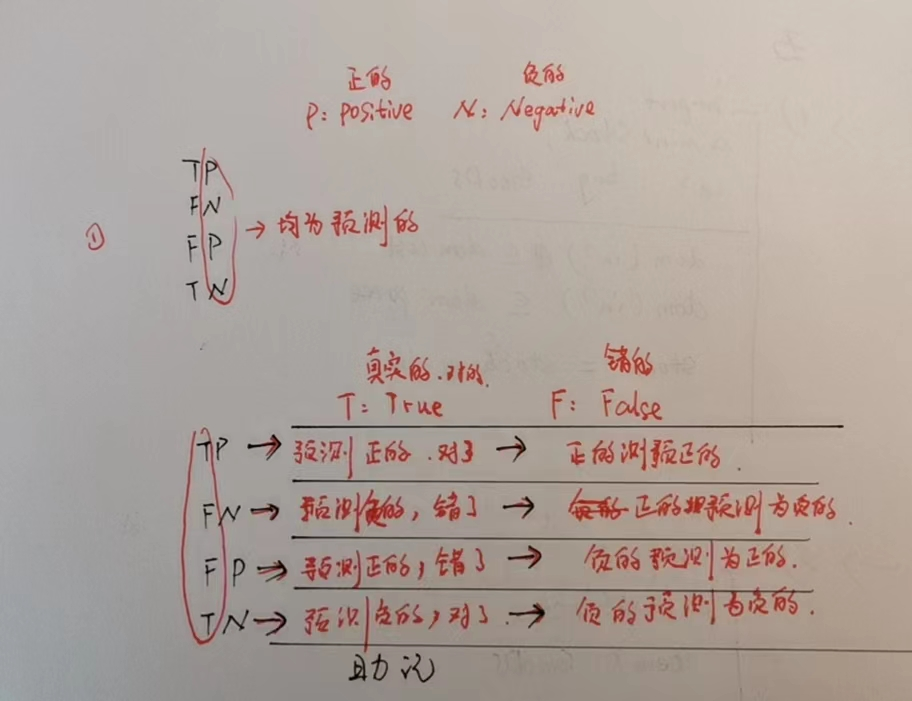 正的 负的
P: positive N: Negative
TP
FN
① → 均为预测的
FP
TN
真实的.对的. 错的
T: True F: False
TP → 预测正的.对了 → 正的测预正的.
FN → 预测负的,错了 → 正的预测为负的.
FP → 预测正的,错了 → 负的预测为正的.
TN → 预测负的,对了. → 负的预测为负的.
助记